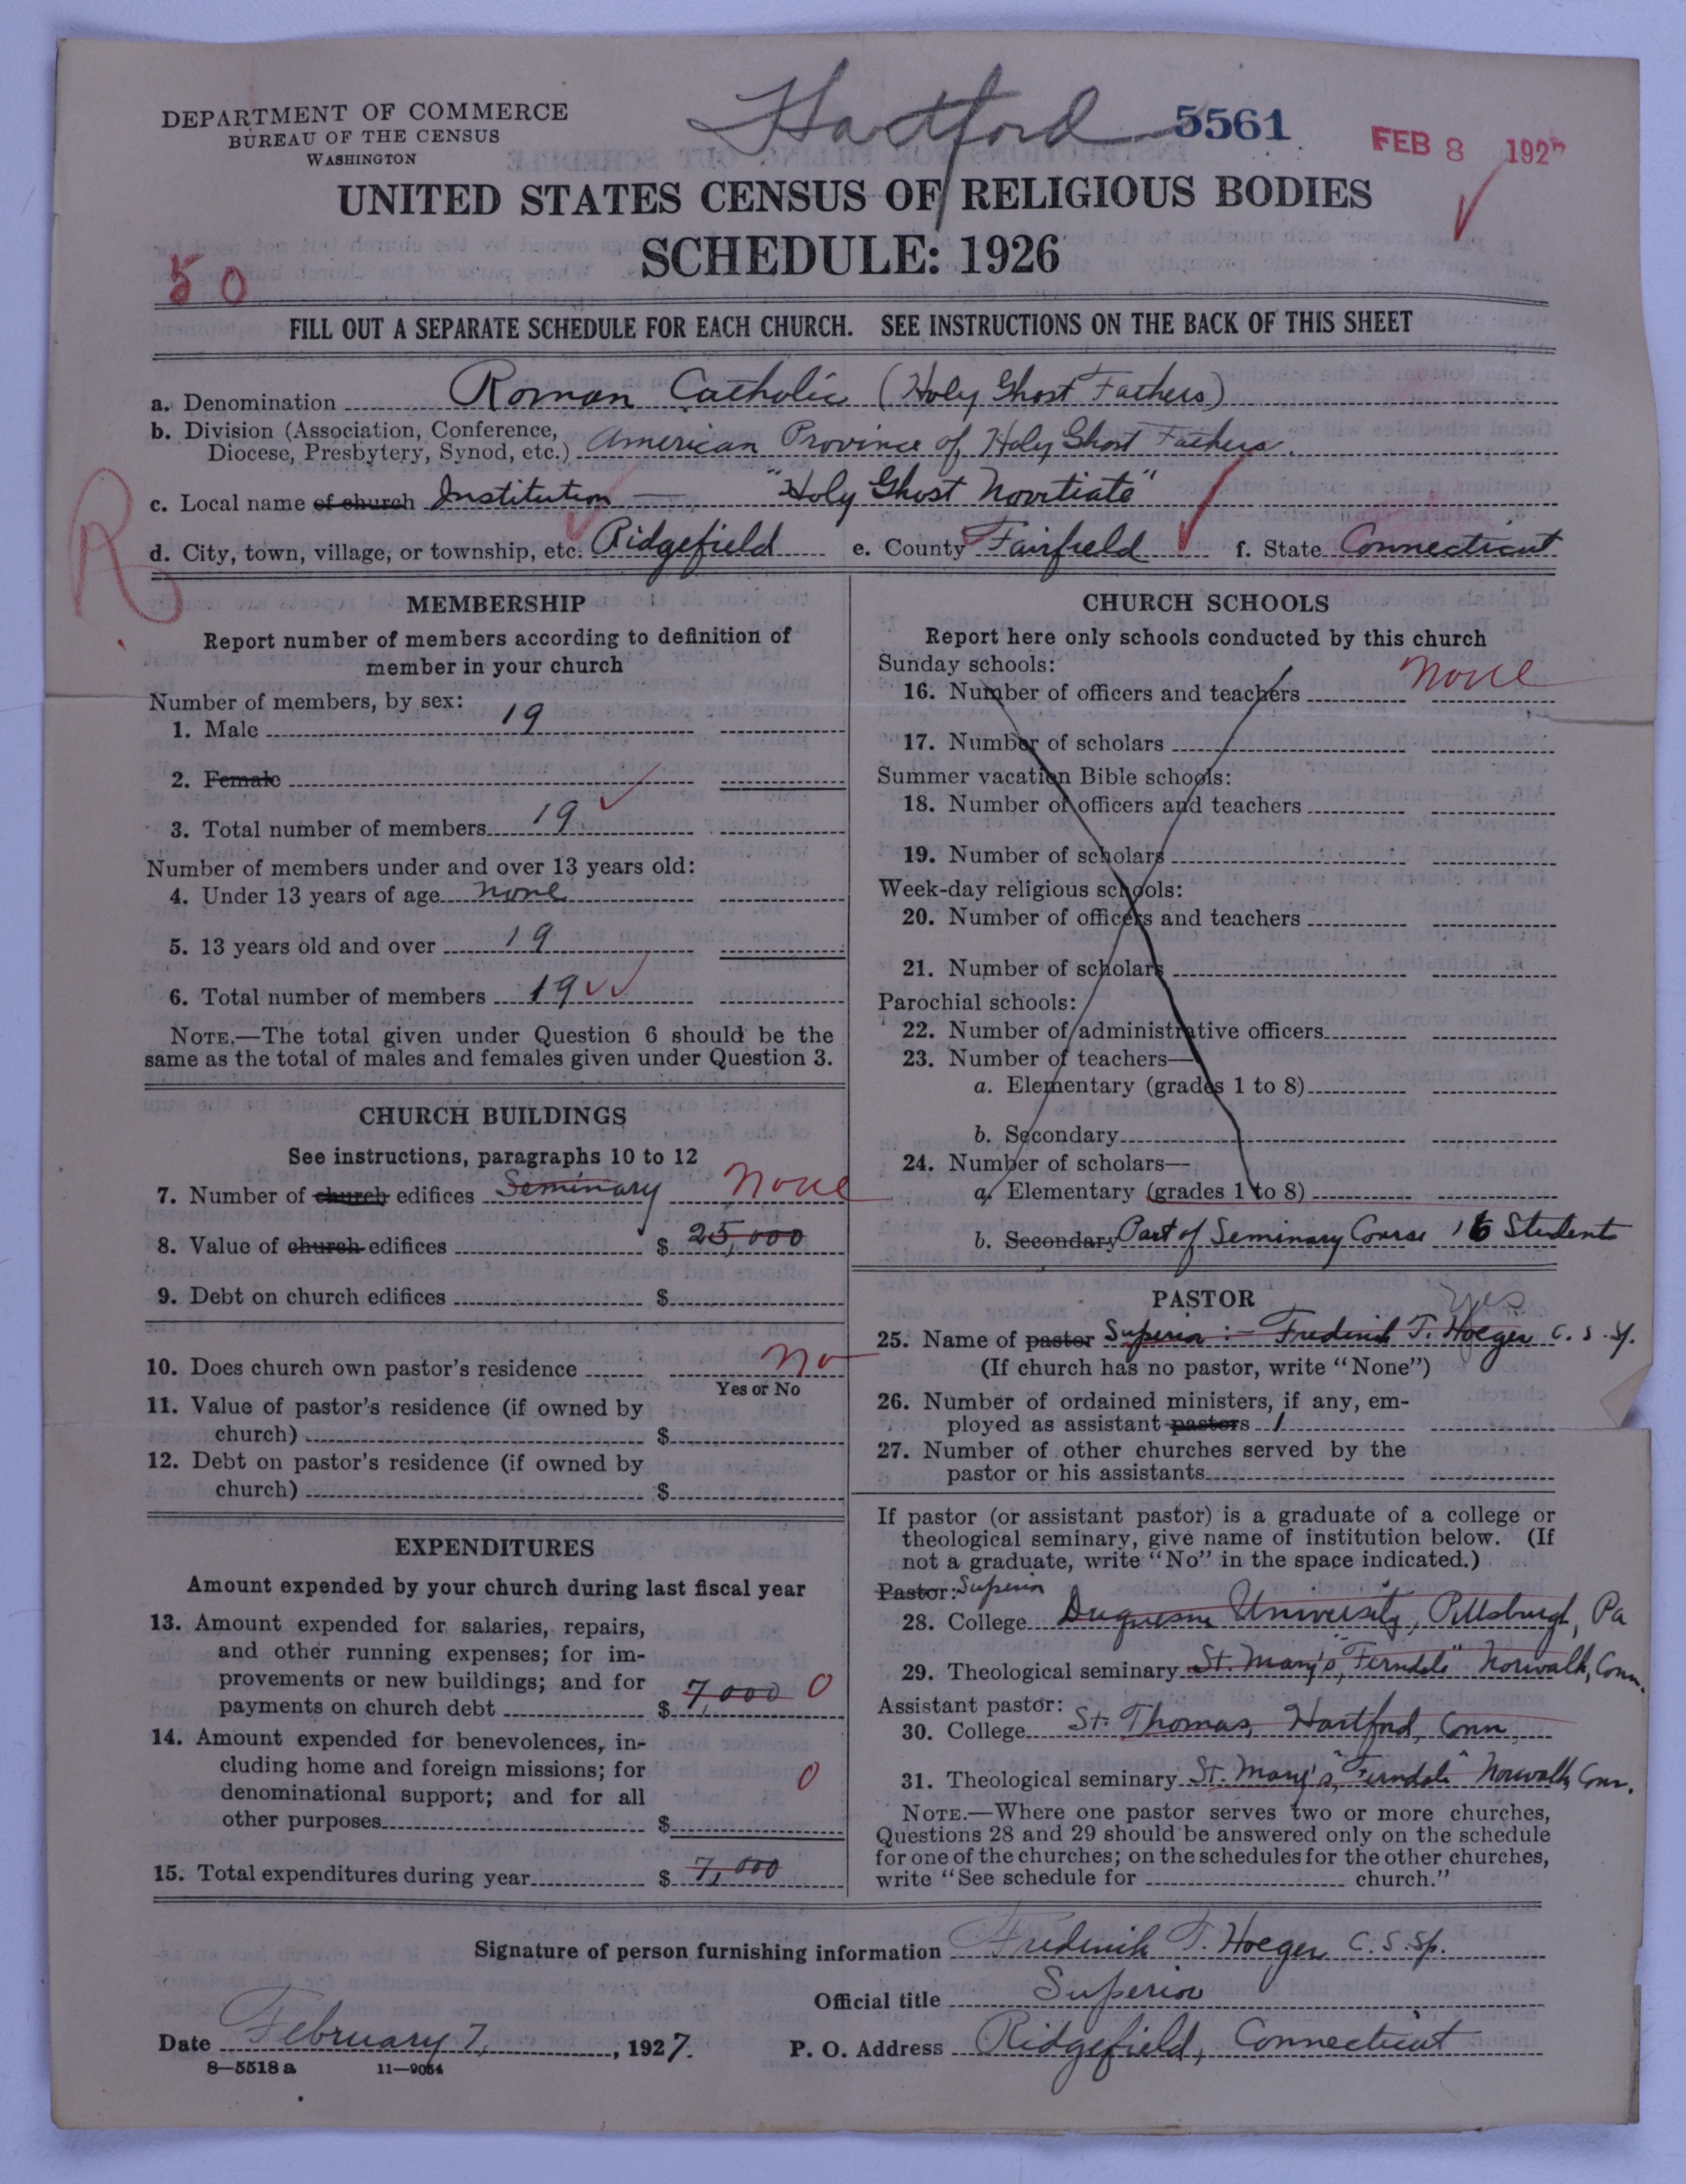 DEPARTMENT OF COMMERCE
BUREAU OF THE CENSUS
WASHINGTON
Hartford
5561
FEB 8 1927
UNITED STATES CENSUS OF RELIGIOUS BODIES
SCHEDULE: 1926
50
FILL OUT A SEPARATE SCHEDULE FOR EACH CHURCH. SEE INSTRUCTIONS ON THE BACK OF THIS SHEET
a. Denomination Roman Catholic (Holy Ghost Fathers)
b. Division (Association, Conference,
Diocese, Presbytery, Synod, etc.) American Province of Holy Ghost Fathers.
c. Local name of church Institution — "Holy Ghost Novitiate"
R
d. City, town, village, or township, etc. Ridgefield e. County Fairfield f. State Connecticut
MEMBERSHIP
Report number of members according to definition of
member in your church
Number of members, by sex:
1. Male 19
2. Female
3. Total number of members 19
Number of members under and over 13 years old:
4. Under 13 years of age none
5. 13 years old and over 19
6. Total number of members 19
NOTE.—The total given under Question 6 should be the
same as the total of males and females given under Question 3.
CHURCH BUILDINGS
See instructions, paragraphs 10 to 12
7. Number of church edifices Seminary None
8. Value of church edifices $ 25,000
9. Debt on church edifices $
10. Does church own pastor's residence No
Yes or No
11. Value of pastor's residence (if owned by
church) $
12. Debt on pastor's residence (if owned by
church) $
EXPENDITURES
Amount expended by your church during last fiscal year
13. Amount expended for salaries, repairs,
and other running expenses; for im-
provements or new buildings; and for
payments on church debt $ 7,000 0
14. Amount expended for benevolences, in-
cluding home and foreign missions; for
denominational support; and for all
other purposes $ 0
15. Total expenditures during year $ 7,000
CHURCH SCHOOLS
Report here only schools conducted by this church
Sunday schools:
16. Number of officers and teachers None
17. Number of scholars
Summer vacation Bible schools:
18. Number of officers and teachers
19. Number of scholars
Week-day religious schools:
20. Number of officers and teachers
21. Number of scholars
Parochial schools:
22. Number of administrative officers
23. Number of teachers—
a. Elementary (grades 1 to 8)
b. Secondary
24. Number of scholars—
a. Elementary (grades 1 to 8)
b. Secondary Part of Seminary Course 16 Students
PASTOR
yes
25. Name of pastor Superior :- Frederick T. Hoeger C. S. Sp.
(If church has no pastor, write "None")
26. Number of ordained ministers, if any, em-
ployed as assistant pastors 1
27. Number of other churches served by the
pastor or his assistants
If pastor (or assistant pastor) is a graduate of a college or
theological seminary, give name of institution below. (If
not a graduate, write "No" in the space indicated.)
Pastor: Superior
28. College Duquesne University, Pittsburgh, Pa
29. Theological seminary St. Mary's, "Ferndale" Norwalk, Conn.
Assistant pastor:
30. College St. Thomas, Hartford, Conn
31. Theological seminary St. Mary's, "Ferndale" Norwalk, Conn.
NOTE.—Where one pastor serves two or more churches,
Questions 28 and 29 should be answered only on the schedule
for one of the churches; on the schedules for the other churches,
write "See schedule for church."
Signature of person furnishing information Frederick T. Hoeger C.S.Sp.
Official title Superior
Date February 7, 1927. P. O. Address Ridgefield, Connecticut
8—5518 a 11—9054